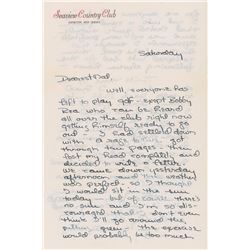 Seaview Country Club
Saturday
Dearest Dal,
Well, everyone has
left to play golf - except Bobby
Rea who can be heard
all over the club right now
getting himself ready to go
out - I had settled down
with a
through the pages - then
lost my head completely and
decided to write a letter.
We came down yesterday
afternoon and the weather
was perfect. so I thought
I would in the sun
today but of course there's
no sun and I'm so dis-
couraged that I don't even
think I'll go around the
putting green - the exercise
would probably be too much